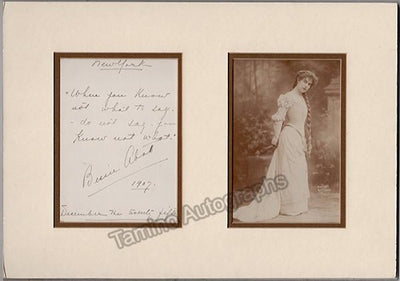 New York
"When you know
not what to say -
- do not say you
know not what."
Bessie Abott
1907.
December the twenty fifth
Tamino Autographs